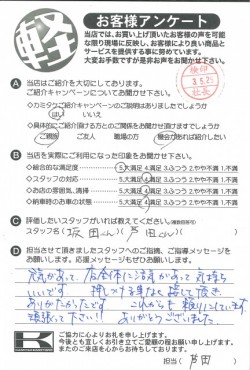 軽
お客様アンケート
当店では、お買い上げ頂いたお客様の声を可能
な限り現場に反映し、お客様により良い商品と
サービスを提供する事に努めております。
大変お手数ですが是非お声をお聞かせ下さい。
検印
3.5.21
社長
A 当店はご紹介を大切にしております。
ご紹介キャンペーンについてお聞かせ下さい。
・カミタウご紹介キャンペーンのご説明はありましたでしょうか
はい いいえ
・具体的にご紹介頂ける方とのご関係をお聞かせ頂けますでしょうか
ご親族 ご友人 職場の方 機会があれば紹介したい
B 当店を実際にご利用になった印象をお聞かせ下さい。
・総合的な満足度 5.大満足 4.満足 3.ふつう 2.やや不満 1.不満
・スタッフの対応 5.大満足 4.満足 3.ふつう 2.やや不満 1.不満
・お店の雰囲気、清掃 5.大満足 4.満足 3.ふつう 2.やや不満 1.不満
・納車時のお車の状態 5.大満足 4.満足 3.ふつう 2.やや不満 1.不満
C 評価したいスタッフがいれば教えてください。(複数回答可)
スタッフ名(坂田くん)(芦田くん)
D 担当させて頂きましたスタッフへのご指摘、ご指導メッセージを
お願いします。応援メッセージもぜひお願いします。
元気があって、店全体に活気があって気持ち
いいです 押しつける事なく接して頂き
ありがたかったです これからも頼りにしています
頑張って下さい!! ありがとうございました
ご協力に心よりお礼を申し上げます。
今後とも宜しくお引き立てご愛顧の程お願い申し上げます。
またのご来店を心からお待ちしております。
担当( 芦田 )